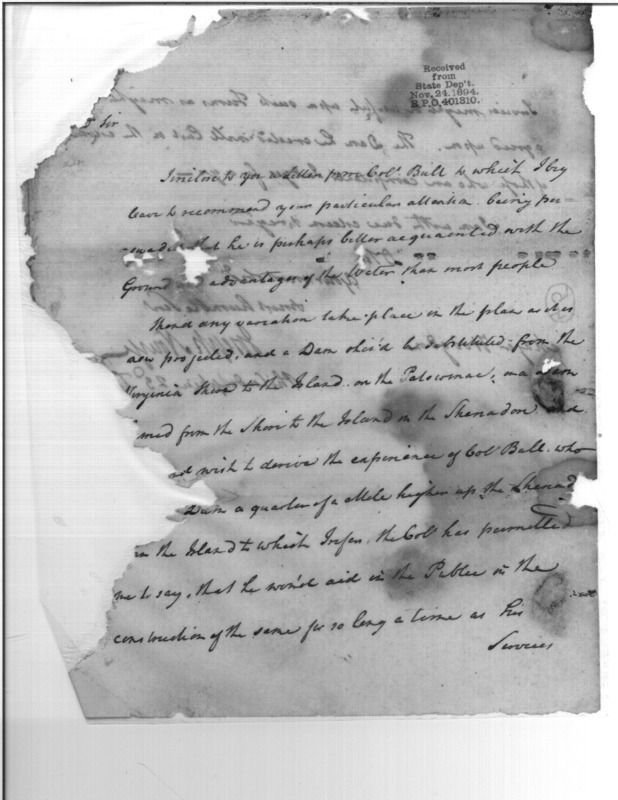 Received
from
State Dep't.
Nov. 24. 1894.
R.P.O. 401310.
Sir
I inclose to you a letter from Col. Ball to which I beg
leave to recommend your particular attention. being per-
-suaded that he is perhaps better acquainted with the
Ground and advantages of the Water than most people
Should any variation take place in the plan as it is
now projected, and a Dam shou'd be substituted from the
Virginia Shore to the Island on the Potowmac, or a
from the Shore to the Island in the Shenadon and
wish to derive the experience of Col. Ball. who
Dam a quarter of a Mile higher up the Shenad
in the Island to which I refer. the Col. has permitted
me to say, that he wou'd aid in the Publec in the
construction of the same for so long a time as his
Services